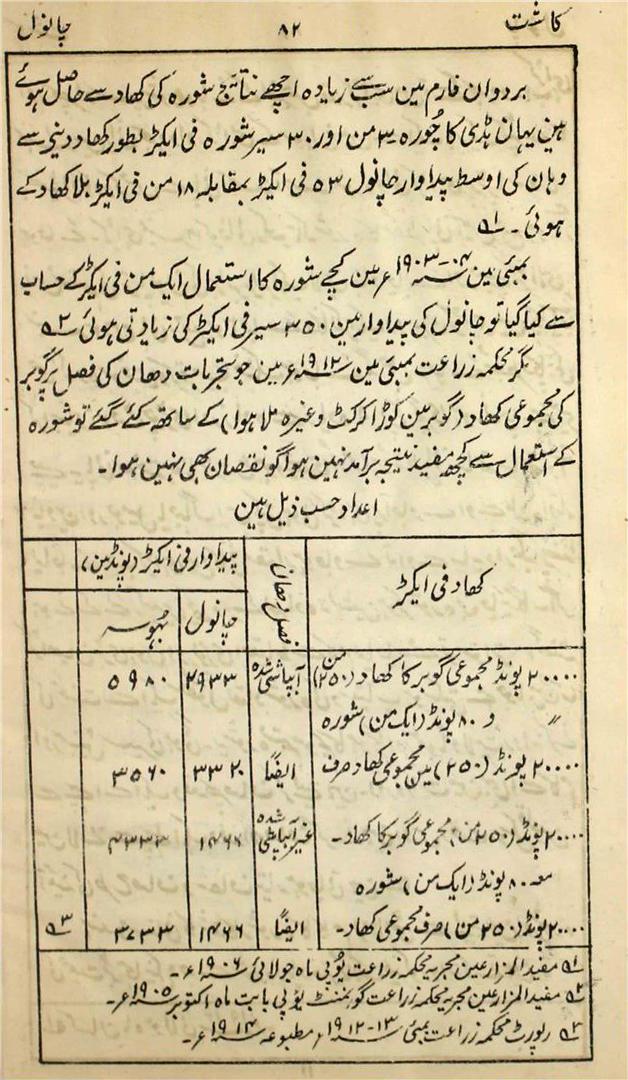 کاشت ۸۲ چانول
بردوان فارم مین سب سے زیادہ اچھے نتائج شورہ کی کھاد سے حاصل ہوئے
ہین یہان ہڈی کا چورہ ۳ من اور ۳۰ سیر شورہ فی ایکڑ بطور کھاد دینے سے
وہان کی اوسط پیداوار چانول ۵۳ فی ایکڑ بمقابلہ ۱۸ من فی ایکڑ بلا کھاد کے
ہوئی۔ ۱؎
بمبئی مین ۰۴-۱۹۰۳ء مین کچے شورہ کا استعمال ایک من فی ایکڑ کے حساب
سے کیا گیا تو چانول کی پیداوار مین ۳۵۰ سیر فی ایکڑ کی زیادتی ہوئی ۲؎
مگر محکمہ زراعت بمبئی مین ۱۹۱۲ء مین جو تجربات دھان کی فصل پر گوبر
کی مجموعی کھاد (گوبر مین کوڑا کرکٹ وغیرہ ملا ہوا) کے ساتھ کئے گئے تو شورہ
کے استعمال سے کچھ مفید نتیجہ برآمد نہین ہوا گو نقصان بھی نہین ہوا۔
اعداد حسب ذیل ہین
کھاد فی ایکڑ فصل دھان پیداوار فی ایکڑ (پونڈ مین)
چانول بھوسہ
۲۰۰۰۰ پونڈ مجموعی گوبر کا کھاد (۲۵۰ من) آبپاشی شدہ ۲۹۳۳ ۵۹۸۰
〃 و ۸۰ پونڈ (ایک من) شورہ
۲۰۰۰۰ پونڈ (۲۵۰) من مجموعی کھاد صرف ایضًا ۳۳۲۰ ۳۵۶۰
۲۰۰۰۰ پونڈ (۲۵۰ من) مجموعی گوبر کا کھاد۔ غیر آبپاشی شدہ ۱۴۶۶ ۴۳۳۳
معہ ۸۰ پونڈ (ایک من) شورہ
۲۰۰۰۰ پونڈ (۲۵۰ من) صرف مجموعی کھاد۔ ایضًا ۱۴۶۶ ۳۷۳۳ ۳؎
۱؎ مفید المزارعین مجریہ محکمہ زراعت یو پی ماہ جولائی ۱۹۰۶ء۔
۲؎ مفید المزارعین مجریہ محکمہ زراعت گورنمنٹ یو پی بابت ماہ اکتوبر ۱۹۰۵ء۔
۳؎ رپورٹ محکمہ زراعت بمبئی ۱۳-۱۹۱۲ء مطبوعہ ۱۹۱۴ء۔